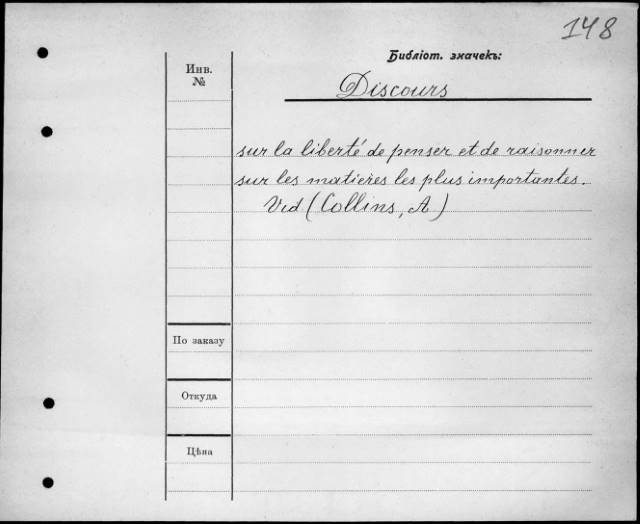 148
Библіот. значекъ:
Инв.
№
Discours
sur la liberté de penser et de raisonner
sur les matières les plus importantes.
Vid (Collins, A)
По заказу
Откуда
Цѣна